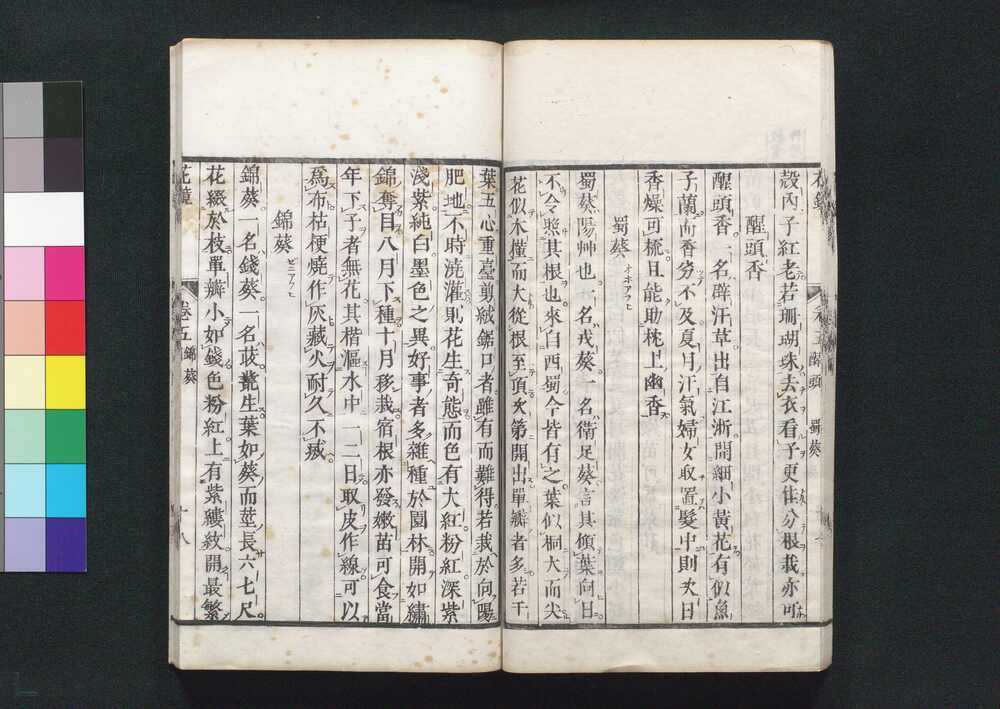 殼內子紅老若珊瑚珠去衣看子更佳分根栽亦可
醒頭香
醒頭香一名辟汗草出自江浙開細小黃花有似魚
子蘭而香劣不及夏月汗氣婦女取置髮中則次日
香燥可梳且能助枕上幽香
蜀葵 オホアフヒ
蜀葵陽艸也一名戎葵一名衞足葵言其傾葉向日
不令照其根也來自西蜀今皆有之葉似桐大而尖
花似木槿而大從根至頂次第開出單瓣者多若千
葉五心重臺剪絨鋸口者雖有而難得若栽於向陽
肥地不時澆灌則花生奇態而色有大紅粉紅深紫
淺紫純白墨色之異好事者多雜種於園林開如繡
錦奪目八月下種十月移栽宿根亦發嫩苗可食當
年下子者無花其楷漚水中一二日取皮作線可以
爲布枯梗燒作灰藏火耐久不滅
錦葵 ゼニアフヒ
錦葵一名錢葵一名茷叢生葉如葵而莖長六七尺
花綴於枝單瓣小如錢色粉紅上有紫縷紋開最繁
花鏡 卷五 錦葵 十八